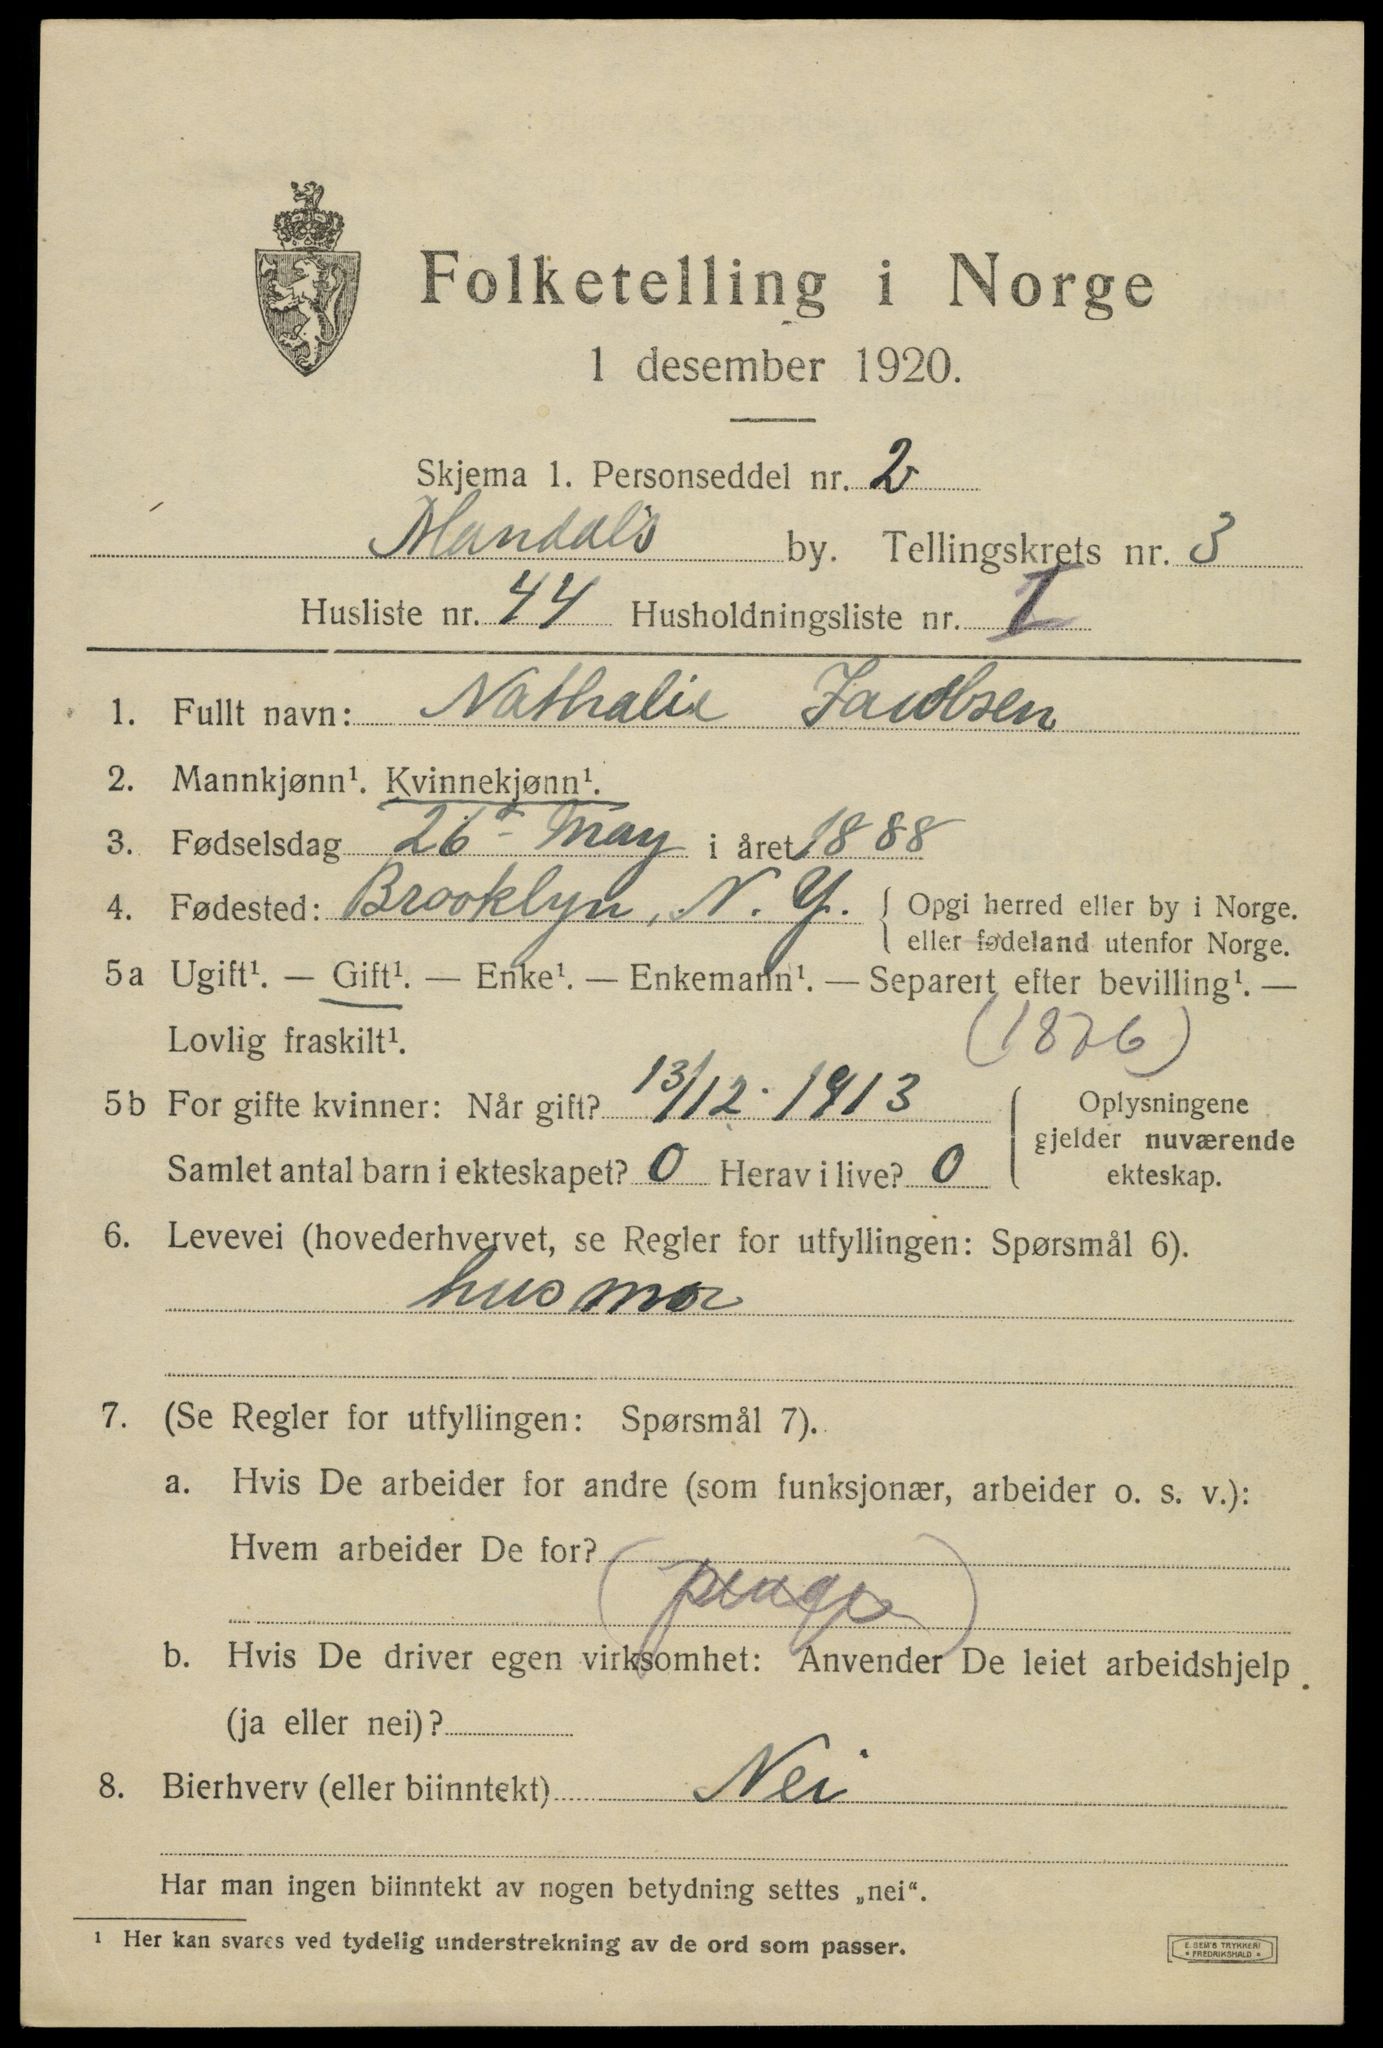 Folketelling i Norge
1 desember 1920.
Skjema 1. Personseddel nr. 2
Mandals by. Tellingskrets nr. 3
Husliste nr. 44 Husholdningsliste nr. I
1. Fullt navn: Nathalie Jacobsen
2. Mannkjønn¹. Kvinnekjønn¹.
3. Fødselsdag 26de May i året 1888
4. Fødested: Brooklyn, N.Y. { Opgi herred eller by i Norge.
eller fødeland utenfor Norge.
5a Ugift¹. — Gift¹. — Enke¹. — Enkemann¹. — Separert efter bevilling¹. —
Lovlig fraskilt¹.
(1826)
5b For gifte kvinner: Når gift? 13/12. 1913
Samlet antal barn i ekteskapet? 0 Herav i live? 0
Oplysningene
gjelder nuværende
ekteskap.
6. Levevei (hovederhvervet, se Regler for utfyllingen: Spørsmål 6).
husmor
7. (Se Regler for utfyllingen: Spørsmål 7).
a. Hvis De arbeider for andre (som funksjonær, arbeider o. s. v.):
Hvem arbeider De for?
b. Hvis De driver egen virksomhet: Anvender De leiet arbeidshjelp
(ja eller nei)?
8. Bierhverv (eller biinntekt) Nei
Har man ingen biinntekt av nogen betydning settes „nei“.
¹ Her kan svares ved tydelig understrekning av de ord som passer.
E. SEM'S TRYKKERI
FREDRIKSHALD